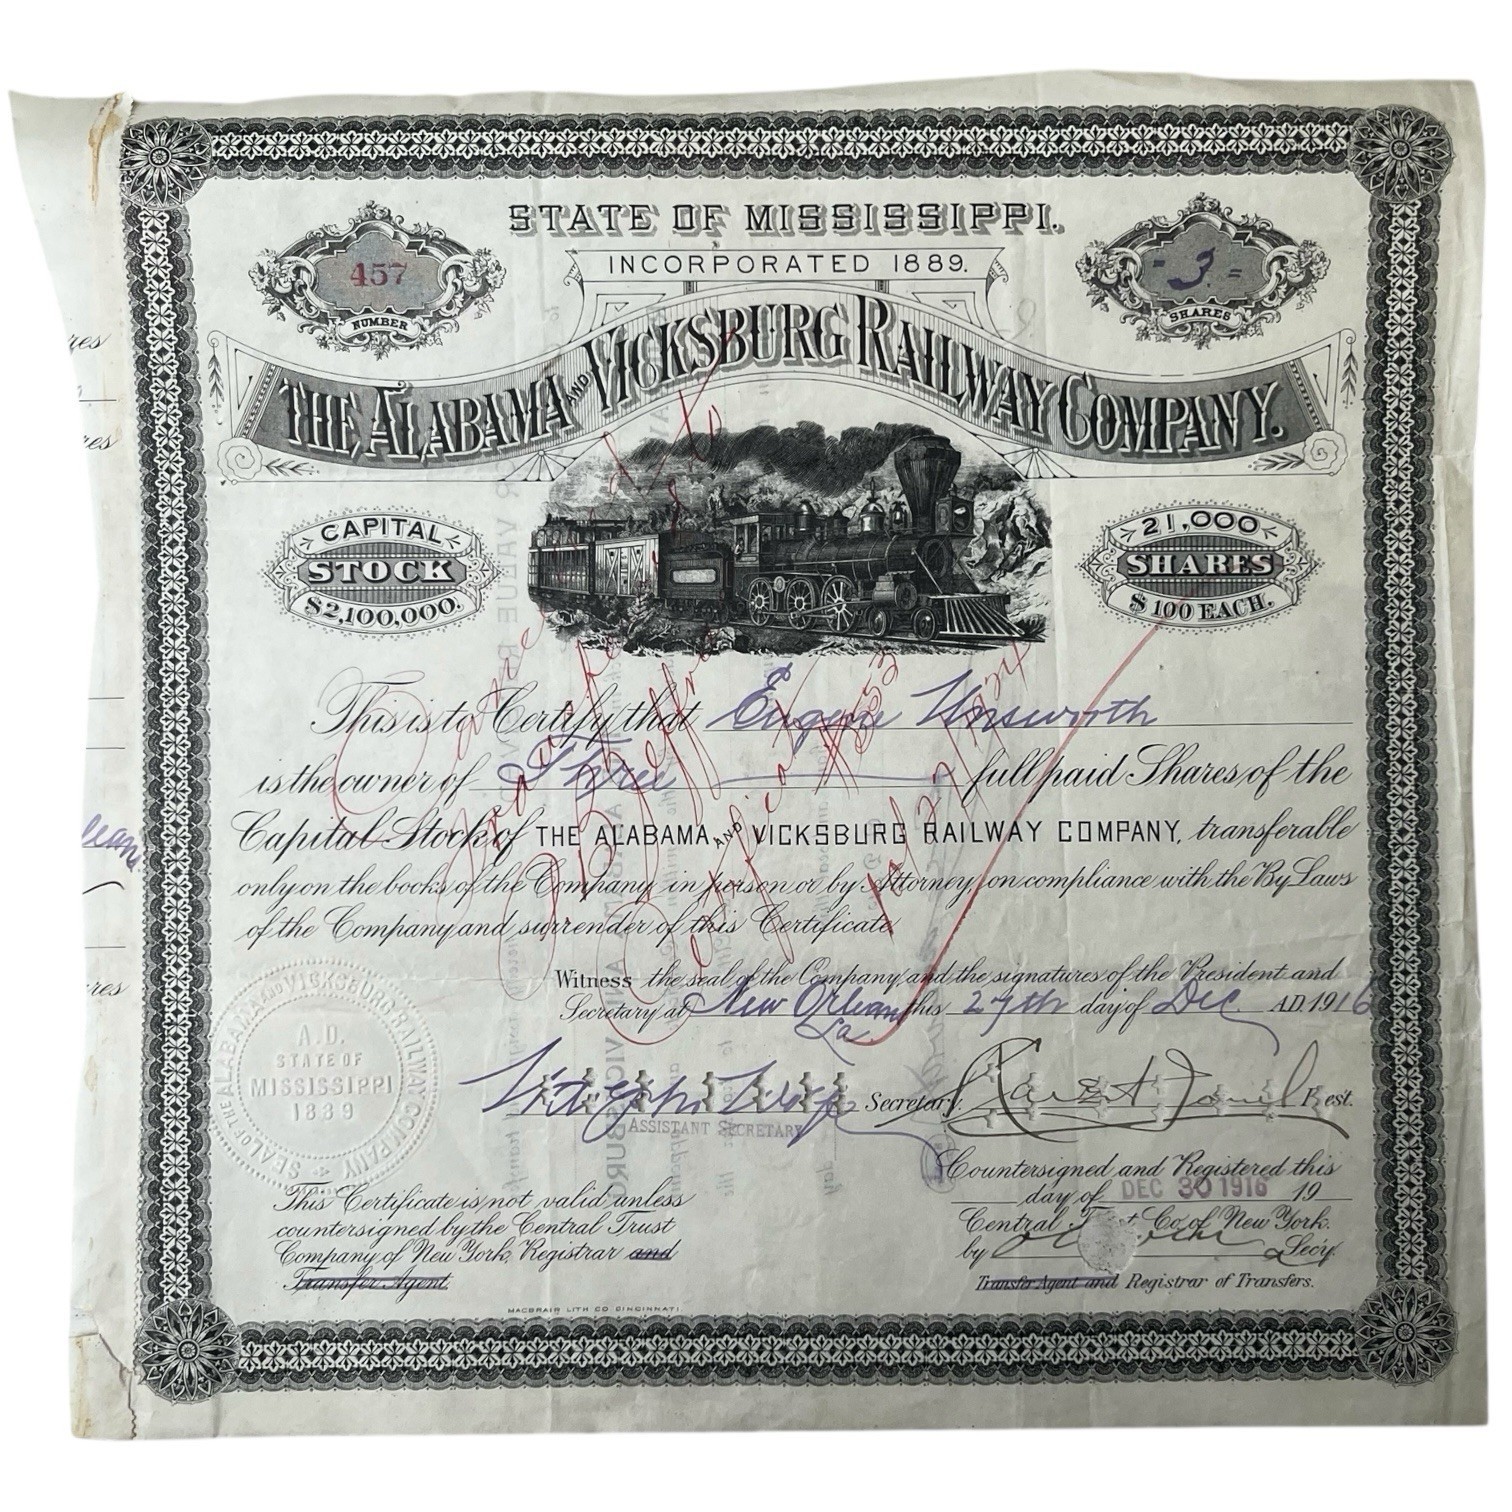 STATE OF MISSISSIPPI.
INCORPORATED 1889.
457
NUMBER
- 3 =
SHARES
THE ALABAMA AND VICKSBURG RAILWAY COMPANY.
CAPITAL
STOCK
$2,100,000.
21,000
SHARES
$100 EACH.
This is to Certify that Eugene Unsworth
is the owner of Three full paid Shares of the
Capital Stock of THE ALABAMA AND VICKSBURG RAILWAY COMPANY, transferable
only on the books of the Company in person or by Attorney, on compliance with the By Laws
of the Company and surrender of this Certificate
Witness the seal of the Company and the signatures of the President and
Secretary at New Orleans La this 27th day of Dec. A.D. 1916
Secretary. Prest.
ASSISTANT SECRETARY
SEAL OF THE ALABAMA AND VICKSBURG RAILWAY COMPANY
A.D.
STATE OF
MISSISSIPPI
1889
Countersigned and Registered this
day of DEC 30 1916 19
Central Trust Co. of New York.
by Secy
Transfer Agent and Registrar of Transfers.
This Certificate is not valid unless
countersigned by the Central Trust
Company of New York, Registrar and
Transfer Agent.
MACBRAIR LITH CO CINCINNATI